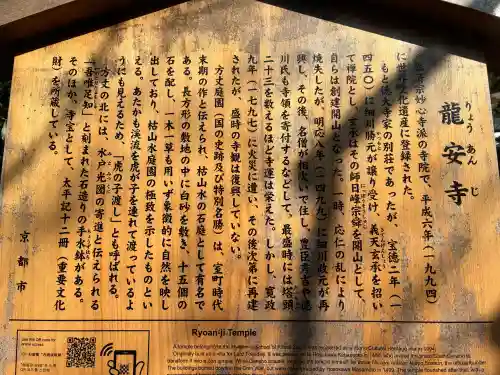 龍安寺
りょうあんじ
臨済宗妙心寺派の寺院で、平成六年(一九九四)
に世界文化遺産に登録された。
もと徳大寺家の別荘であったが、宝徳二年(一
四五〇)に細川勝元が譲り受け、義天玄承を招い
て禅院とし、玄承はその師日峰宗舜を開山として、
自らは創建開山となった。一時、応仁の乱により
焼失したが、明応八年(一四九九)に細川政元が再
興し、その後、名僧が相次いで住し、豊臣秀吉や徳
川氏も寺領を寄付するなどして、最盛時には塔頭
二十三を数えるほど寺運は栄えた。しかし、寛政
九年(一七九七)に火災に遭い、その後次第に再建
されたが、盛時の寺観は復興していない。
方丈庭園(国の史跡及び特別名勝)は、室町時代
末期の作と伝えられ、枯山水の石庭として有名で
ある。長方形の敷地の中に白砂を敷き、十五個の
石を配し、一木一草も用いず象徴的に自然を映し
出しており、枯山水庭園の極致を示したものとい
える。あたかも渓流を虎が子を連れて渡っているよ
うにも見えるため、「虎の子渡し」とも呼ばれる。
方丈の北には、水戸光圀の寄進と伝えられる
「吾唯足知」と刻まれた石造りの手水鉢がある。
そのほか、寺宝として、太平記十二冊(重要文化
財)を所蔵している。
京都市
Ryoan-ji Temple